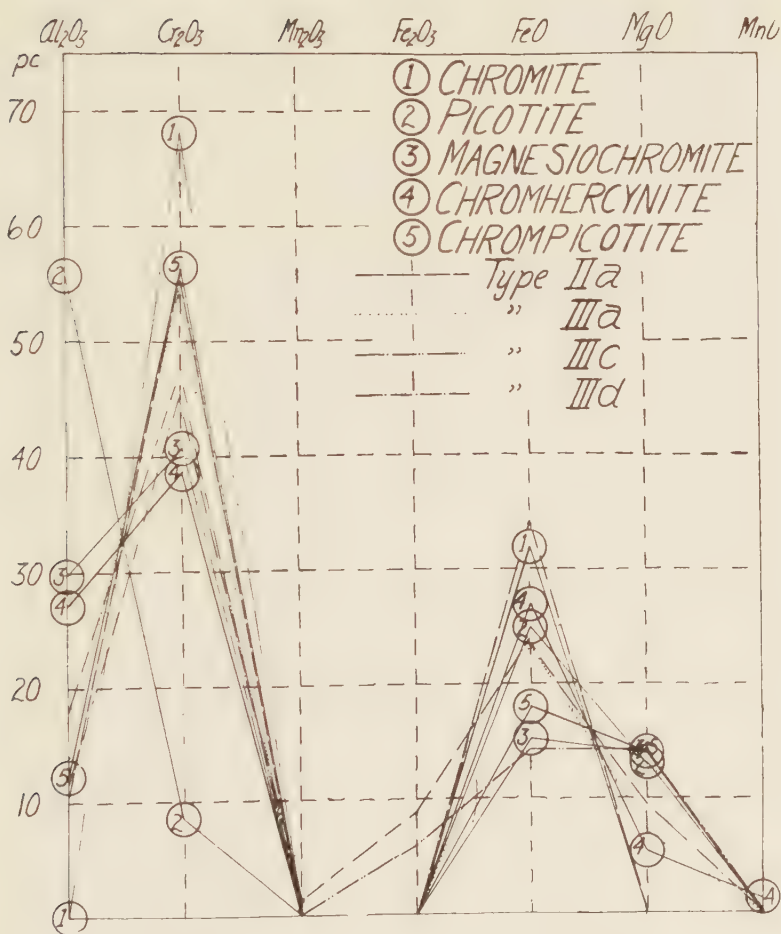 Al₂O₃ Cr₂O₃ Mn₂O₃ Fe₂O₃ FeO MgO MnO
pc
70
60
50
40
30
20
10
① CHROMITE
② PICOTITE
③ MAGNESIOCHROMITE
④ CHROMHERCYNITE
⑤ CHROMPICOTITE
Type IIa
" IIIa
" IIIc
" IIId
1
5
2
3
4
3
4
5
2
1
1
4
2
5
3
4
4